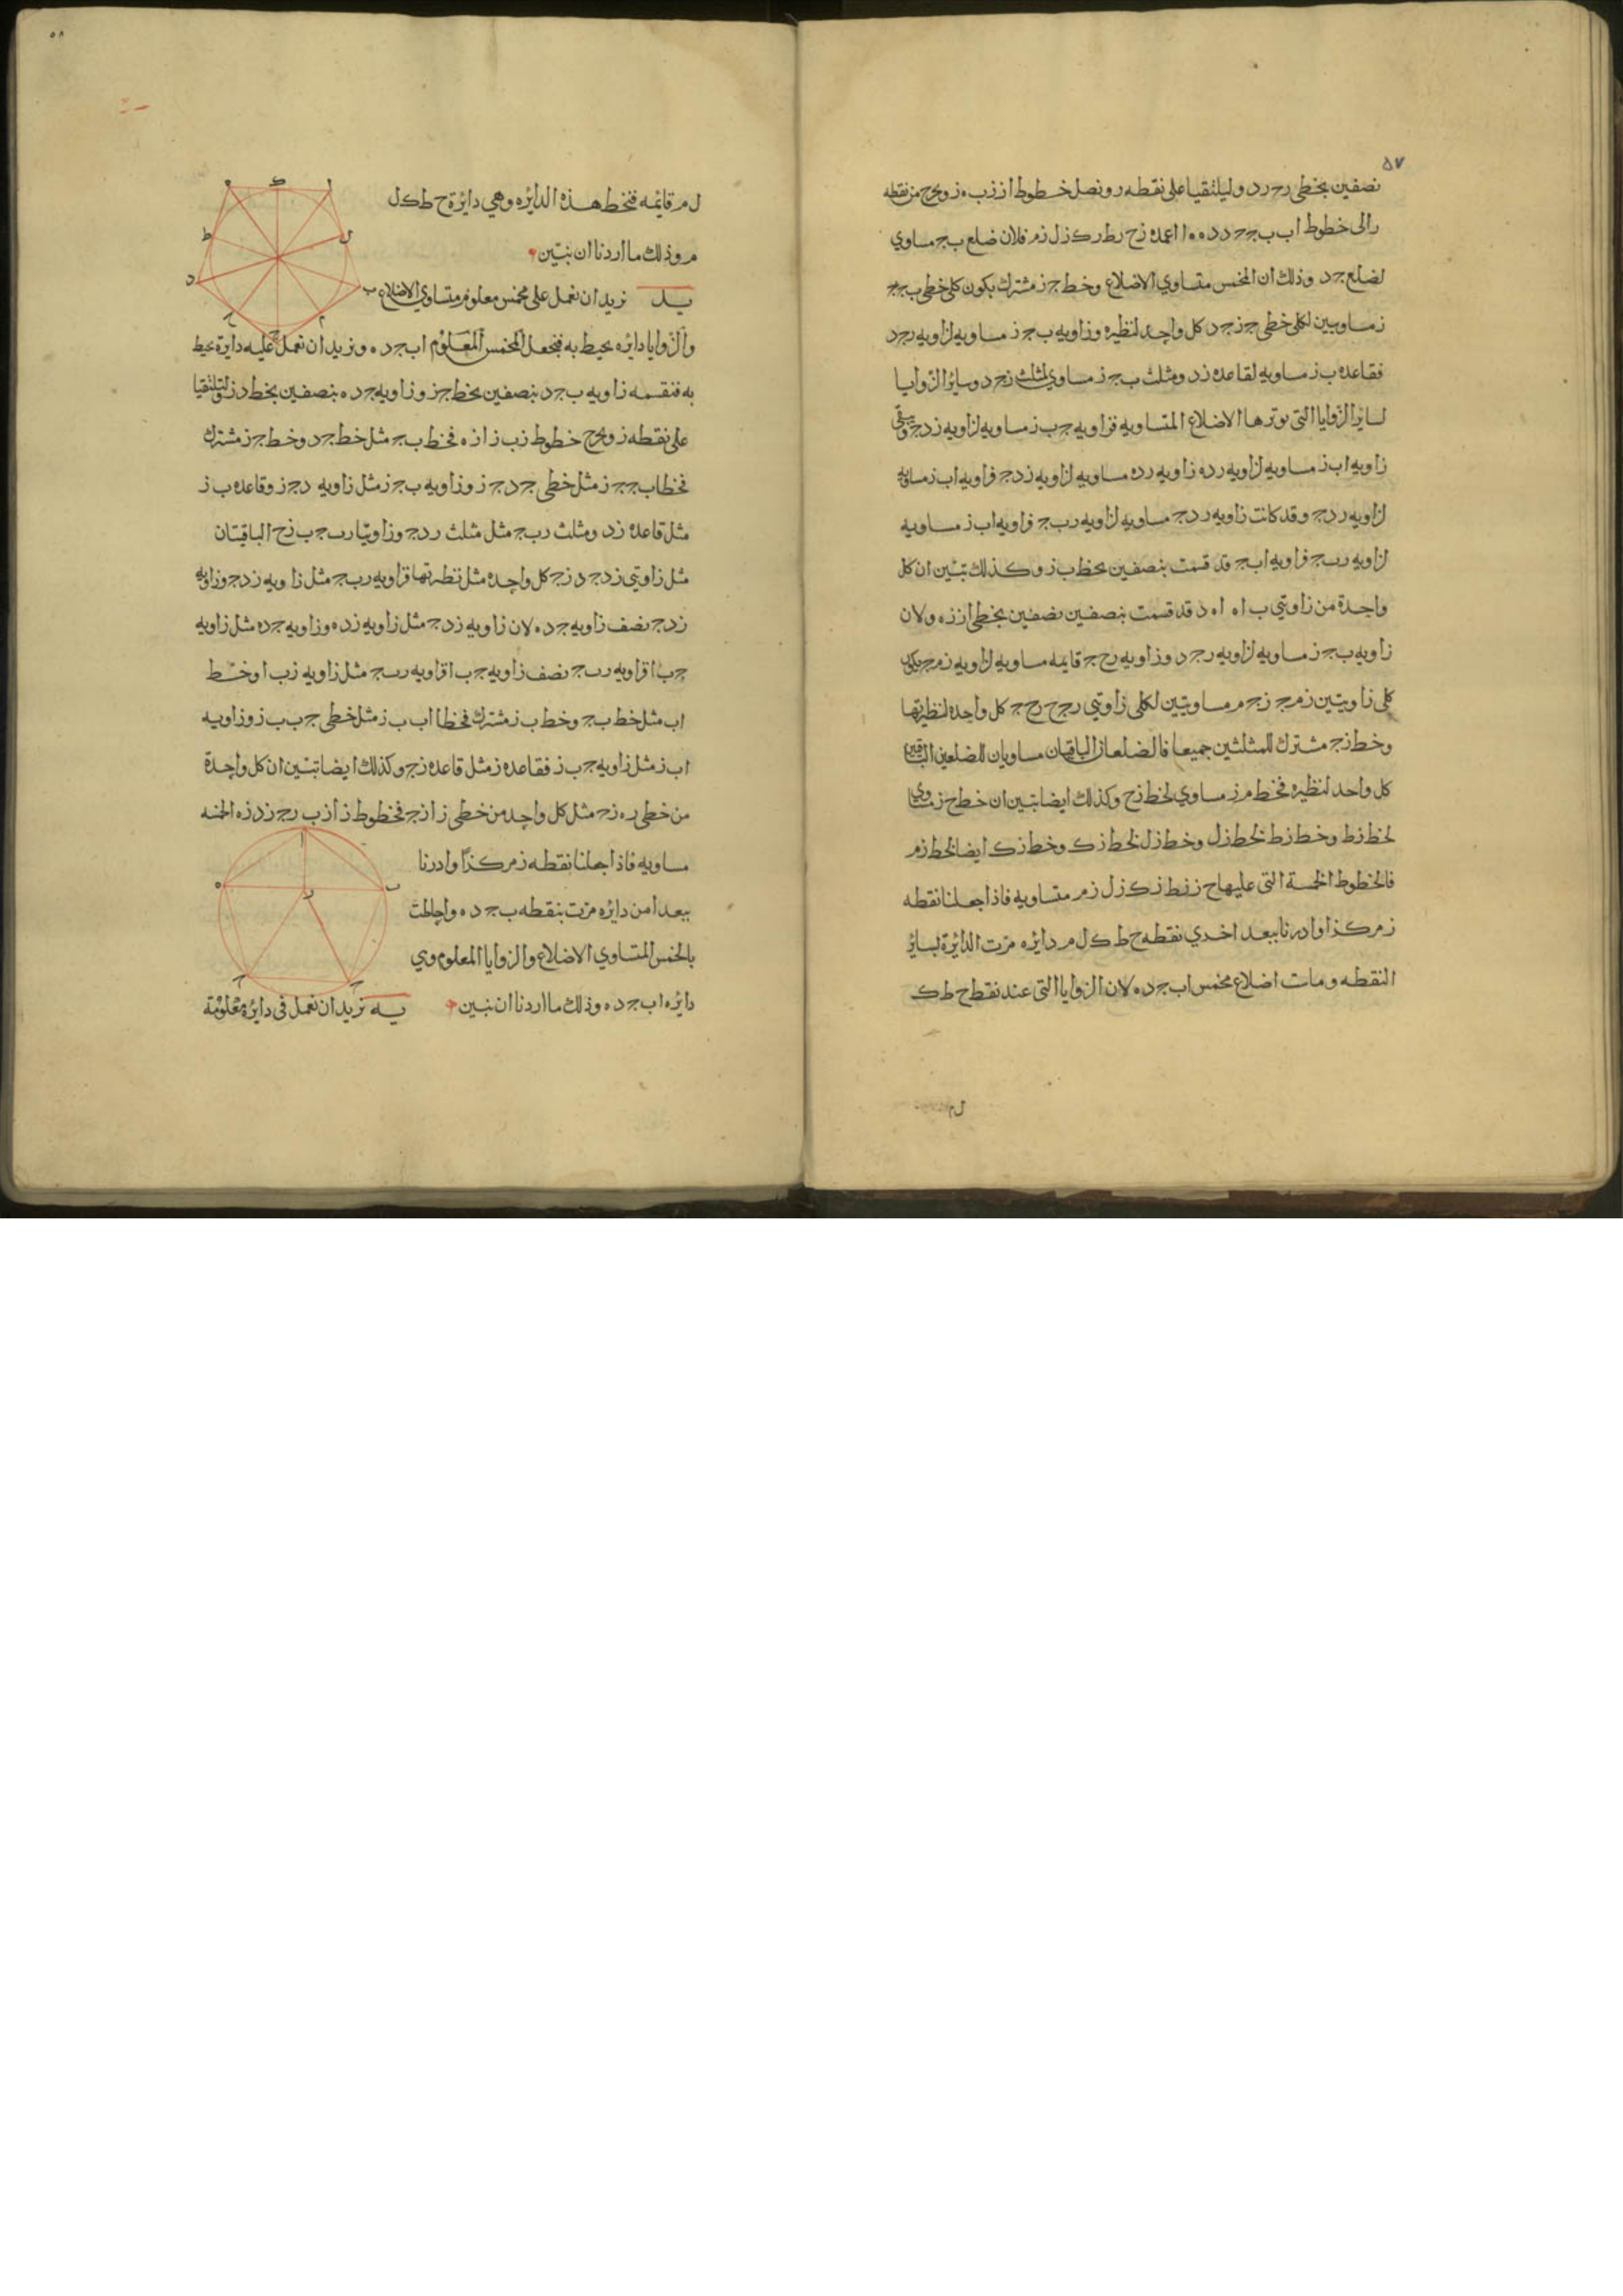 ٥٧
نصفين بخطى رج رد وليلتقيا على نقطه ر ونصل خطوط ا ز ز ب ه ز ونخرج من نقطه
ر الى خطوط اب ب ج ج د د ه ه ا اعمده زح رط رك زل زم فلان ضلع ب ج مساوي
لضلع ج د وذلك ان المخمس متساوي الاضلاع وخط ج ز مشترك يكون كلى خطى ب ج ج
ز مساويين لكلى خطى ج ز ج د كل واحد لنظيره وزاويه ب ج ز مساويه لزاويه ر ج د
فقاعده ب ز مساويه لقاعده ز د ومثلث ب ج ز مساوي لمثلث ز ج د وسائر الزوايا
لسائر الزوايا التى يوترها الاضلاع المتساويه فزاويه ج ب ز مساويه لزاويه ز د ج ويبقى
زاويه اب ز مساويه لزاويه ر د ه زاويه ر د ه مساويه لزاويه ز د ج فزاويه اب ز مساويه
لزاويه ر د ج وقد كانت زاويه ر د ج مساويه لزاويه ر ب ج فزاويه اب ز مساويه
لزاويه ر ب ج فزاويه اب ج قد قسمت بنصفين بخط ب ز وكذلك تبين ان كل
واحدة من زاويتي ب ا ه ا ه د قد قسمت بنصفين نصفين بخطى ا ز ز ه ولان
زاويه ب ج ز مساويه لزاويه ر ج د وزاويه ر ح ج قايمه مساويه لزاويه ز م ج يكون
كلى زاويتين ز م ج ز ج م مساويتين لكلى زاويتي ر ج ح ر ح ج كل واحده لنظيرتها
وخط ز ج مشترك للمثلثين جميعا فالضلعان الباقيان مساويان للضلعين الباقيين
كل واحد لنظيره فخط م ز مساوي لخط زح وكذلك ايضا تبين ان خط ح ز مساوي
لخط زط وخط زط لخط زل وخط زل لخط زك وخط زك ايضا لخط زم
فالخطوط الخمسة التى عليها ح ز زط زك زل زم متساويه فاذا جعلنا نقطه
ز مركذا وادرنا ببعد احدي نقطه ح ط ك ل م دايره مرت الدايرة لسائر
النقطه وماست اضلاع مخمس اب ج د ه لان الزوايا التى عند نقط ح ط ك
ل م
٥٨
ل م قائمه فتخط هذه الدايره وهي دايرة ح ط ك ل
م وذلك ما اردنا ان نبين
يد نريد ان نعمل على مخمس معلوم متساوي الاضلاع
والزوايا دايره يحيط به فنجعل المخمس المعلوم اب ج د ه ونريد ان نعمل عليه دايرة يحيط
به فنقسمه زاويه ب ج د بنصفين بخط ج ز وزاويه ج د ه بنصفين بخط د ز
على نقطه ز ونخرج خطوط ز ب ز ا ز ه فخط ب ج مثل خط ج د وخط ج ز مشترك
فخطا ب ج ج ز مثل خطى ج د ج ز وزاويه ب ج ز مثل زاويه د ج ز وقاعده ب ز
مثل قاعده ز د ومثلث ر ب ج مثل مثلث ر د ج وزاويتا ر ب ج ب ز ح الباقيتان
مثل زاويتي ز د ج د ز ج كل واحده مثل نظيرتها فزاويه ر ب ج مثل زاويه ز د ج وزاويه
ز د ج نصف زاويه ج د ه لان زاويه ز د ج مثل زاويه ز د ه وزاويه ج د ه مثل زاويه
ج ب ا فزاويه ر ب ج نصف زاويه ج ب ا فزاويه ر ب ج مثل زاويه ز ب ا وخط
اب مثل خط ب ج وخط ب ز مشترك فخطا اب ب ز مثل خطى ج ب ب ز وزاويه
اب ز مثل زاويه ج ب ز فقاعده ز مثل قاعده ز ج وكذلك ايضا تبين ان كل واحدة
من خطى ر ه ز ج مثل كل واحد من خطى ز ا ز ج فخطوط ز ا ز ب ر ج ز د ز ه الخمسه
مساويه فاذا جعلنا نقطه ز مركذا وادرنا
ببعد ا من دايره مرت بنقطه ب ج د ه واحاطت
بالخمس المتساوي الاضلاع والزوايا المعلوم وهي
دايره اب ج د ه وذلك ما اردنا ان نبين يه نريد ان نعمل فى دايرة معلومة